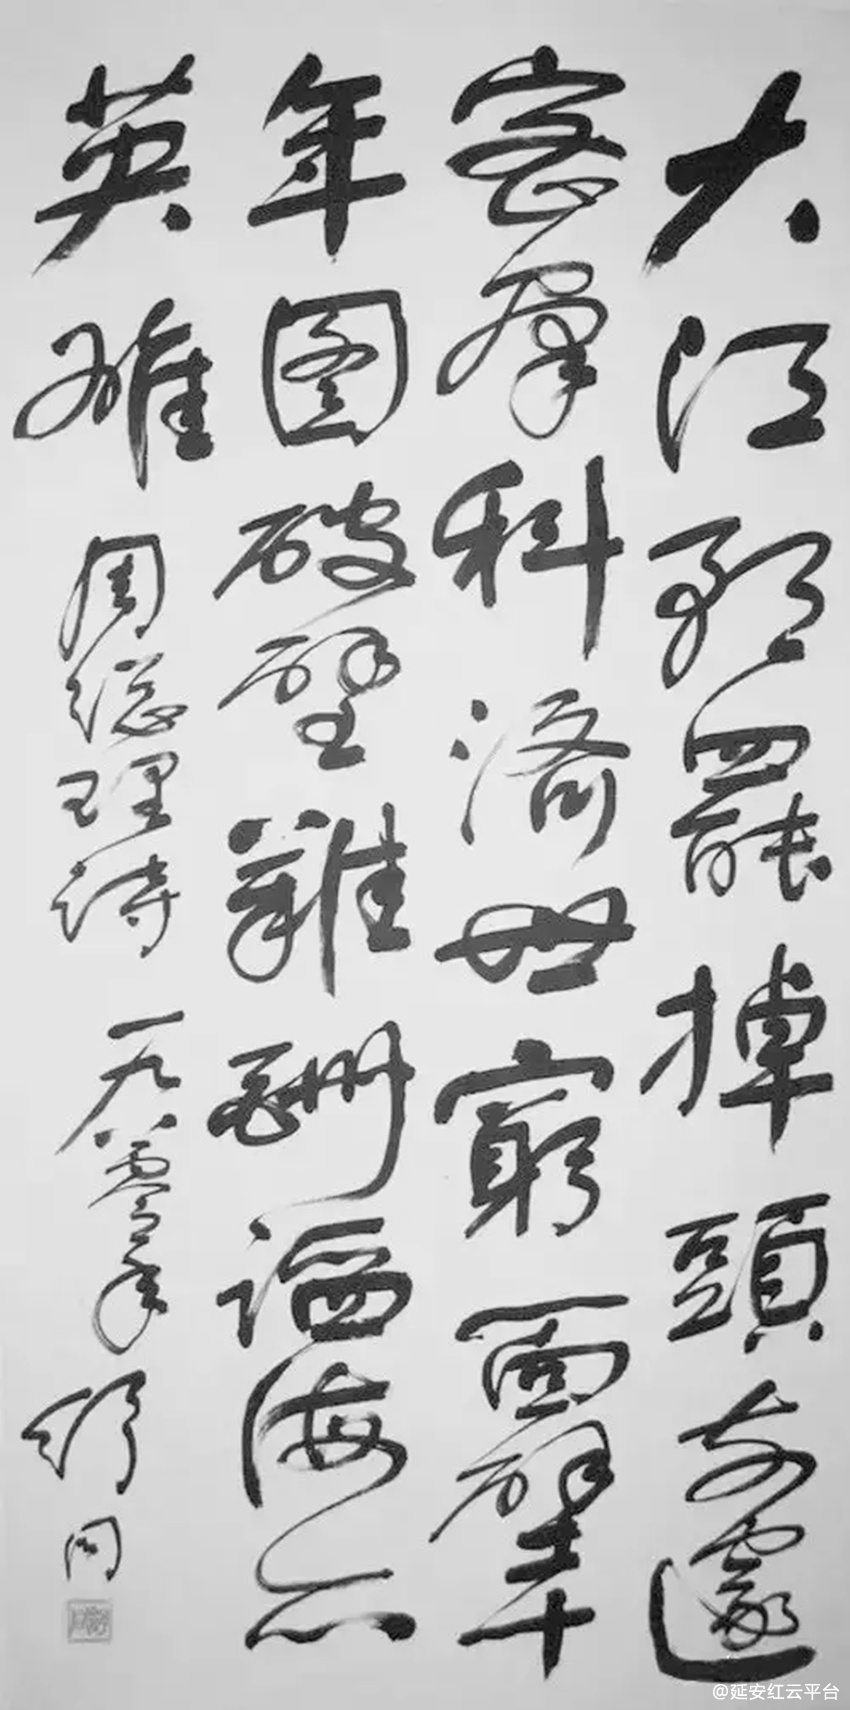 大江歌罷掉頭东邃
密群科济世窮面壁十
年图破壁難酬蹈海亦
英雄
周總理诗 一九八零年 舒同
@延安红云平台